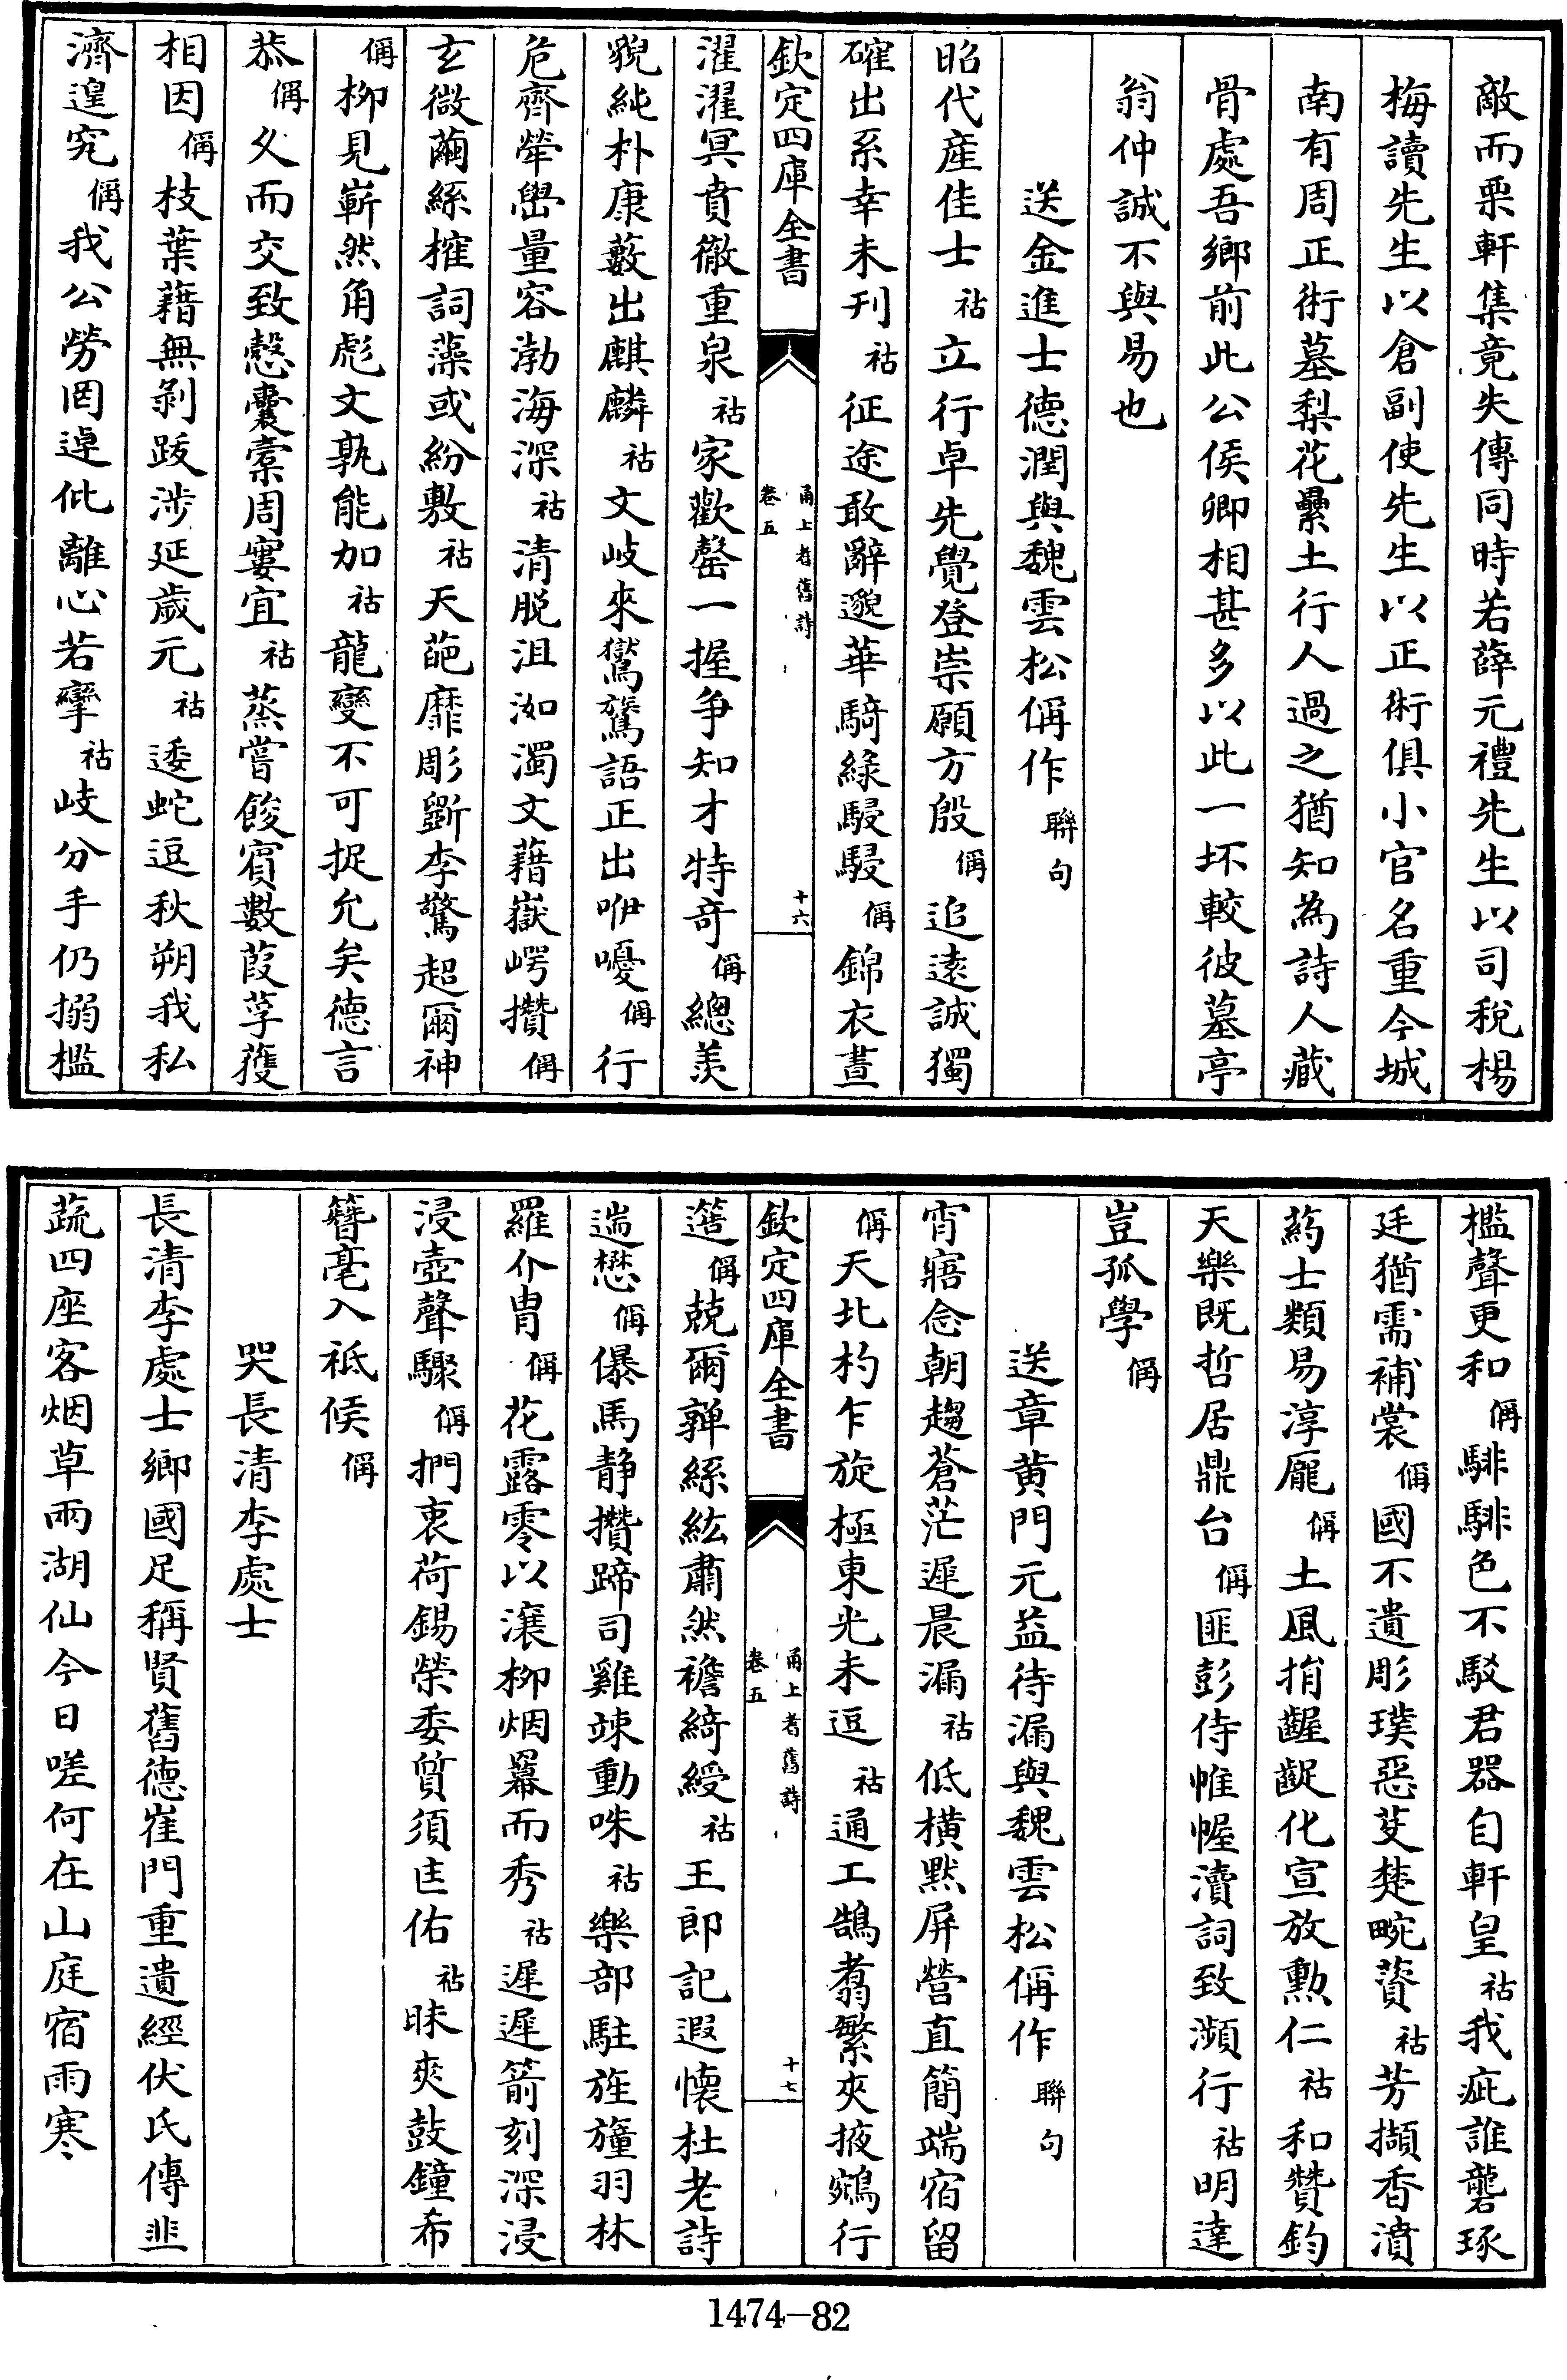 敵而栗軒集竟失傳同時若薛元禮先生以司稅楊
梅讀先生以倉副使先生以正術俱小官名重今城
南有周正術墓梨花纍土行人過之猶知為詩人藏
骨處吾鄉前此公侯卿相甚多以此一坏較彼墓亭
翁仲誠不與易也
送金進士德潤與魏雲松偁作聯句
昭代產佳士祜立行卓先覺登崇願方殷偁追遠誠獨
確出系幸未刋祜征途敢辭邈華騎綠駸駸偁錦衣晝
欽定四庫全書
甬上耆舊詩
卷五
十六
濯濯冥賁徹重泉祜家歡罄一握爭知才特奇偁總羨
貌純朴康藪出麒麟祜文岐來鸑鷟語正出咿嚘偁行
危齊犖嶨量容渤海深祜清脱沮洳濁文藉嶽崿攢偁
玄微繭絲搉詞藻或紛敷祜天葩靡彫斲李驚超爾神
偁柳見嶄然角彪文孰能加祜龍變不可捉允矣德言
恭偁攵而交致慤囊橐周窶宜祜蒸嘗餕賓數葭莩獲
相因偁枝葉藉無剝跋涉延歲元祜逶蛇逗秋朔我私
濟遑究偁我公勞罔逴仳離心若攣祜岐分手仍搦檻
檻聲更和偁騑騑色不駁君器自軒皇祜我疵誰礱琢
廷猶需補裳偁國不遺彫璞惡芟楚畹薋祜芳擷香濆
葯士類易淳龐偁土風捐齷齪化宣放勲仁祜和贊鈞
天樂既哲居鼎台偁匪彭侍帷幄瀆詞致瀕行祜明達
豈孤學偁
送章黄門元益待漏與魏雲松偁作聯句
宵寤念朝趨蒼茫遲晨漏祜低横黙屏營直簡端宿留
偁天北杓乍旋極東光未逗祜通工鵠翥繁夾掖鵷行
欽定四庫全書
甬上耆舊詩
卷五
十七
簉偁兢爾亸絲紘肅然襜綺綬祜王郎記遐懷杜老詩
遄懋偁儤馬静攢蹄司雞竦動咮祜樂部駐旌旜羽林
羅介胄偁花露零以瀼柳烟羃而秀祜遲遲箭刻深浸
浸壺聲驟偁捫衷荷錫榮委質須匡佑祜昧爽鼓鐘希
簪毫入祗候偁
哭長清李處士
長清李處士鄉國足稱賢舊德崔門重遺經伏氏傳韭
蔬四座客烟草兩湖仙今日嗟何在山庭宿雨寒
1474-82